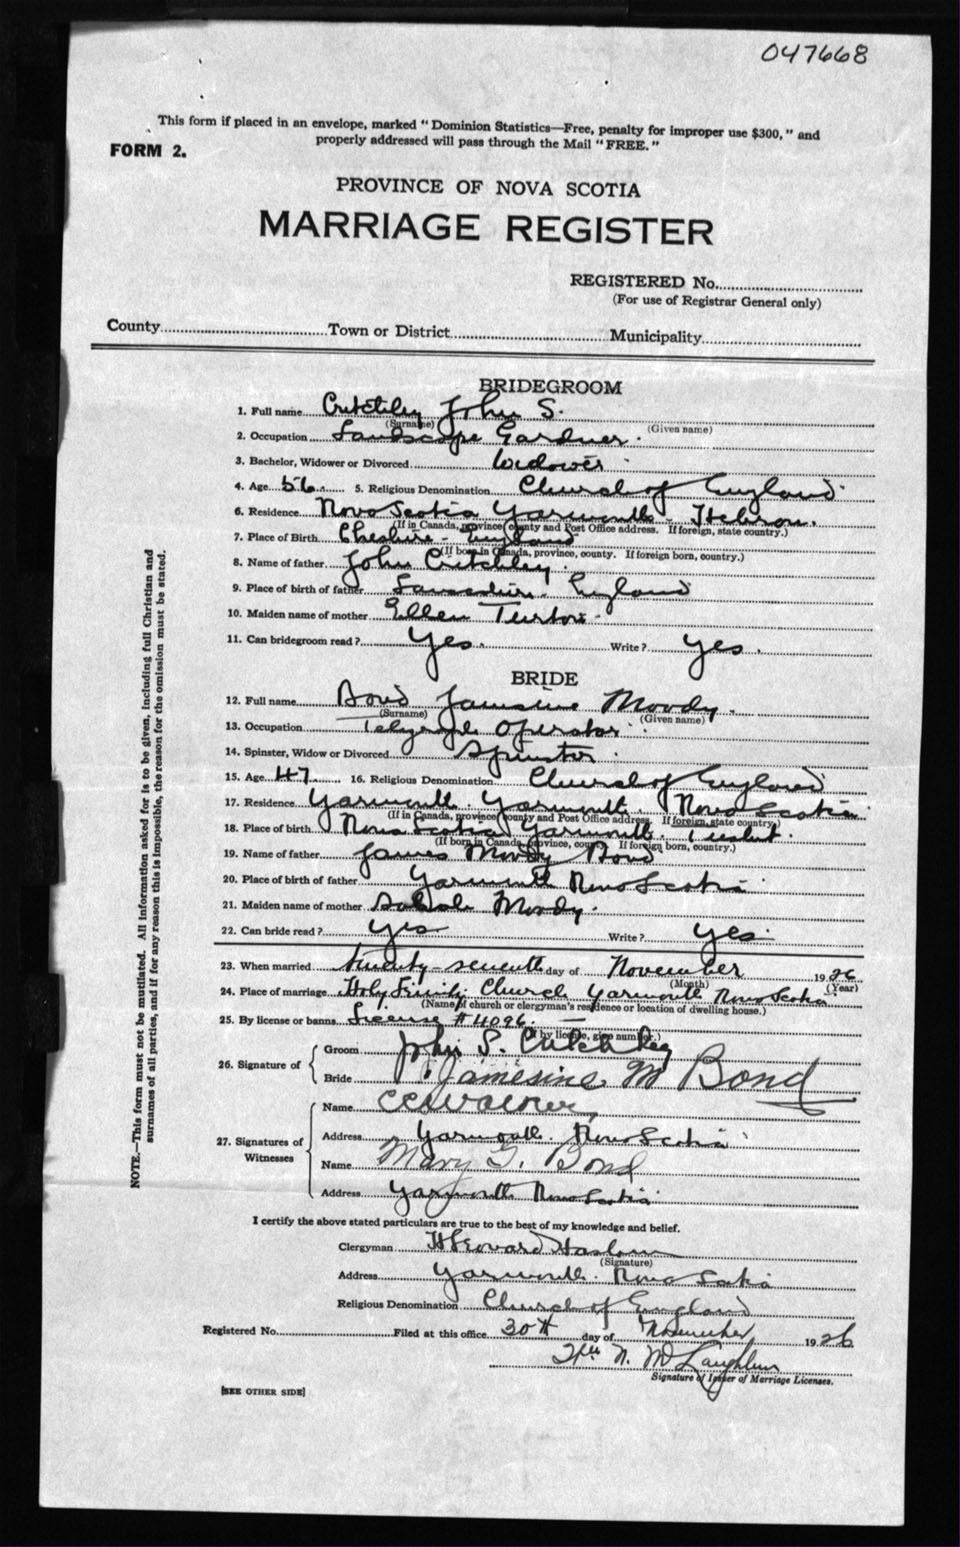 047668
This form if placed in an envelope, marked " Dominion Statistics—Free, penalty for improper use $300, " and
properly addressed will pass through the Mail " FREE. "
FORM 2.
PROVINCE OF NOVA SCOTIA
MARRIAGE REGISTER
REGISTERED No.
(For use of Registrar General only)
County Town or District Municipality
BRIDEGROOM
1. Full name Critchley John S.
(Surname) (Given name)
2. Occupation Landscape Gardner.
3. Bachelor, Widower or Divorced Widower
4. Age 56 5. Religious Denomination Church of England
6. Residence Nova Scotia Yarmouth - Hebron.
(If in Canada, province county and Post Office address. If foreign, state country.)
7. Place of Birth Cheshire - England
(If born in Canada, province, county. If foreign born, country.)
8. Name of father John Critchley.
9. Place of birth of father England
10. Maiden name of mother Ellen
11. Can bridegroom read? Yes. Write? Yes.
BRIDE
12. Full name Bond Jamesine Moody.
(Surname) (Given name)
13. Occupation Telegraph Operator
14. Spinster, Widow or Divorced Spinster
15. Age 47 16. Religious Denomination Church of England
17. Residence Yarmouth. Yarmouth. Nova Scotia
(If in Canada, province county and Post Office address. If foreign, state country.)
18. Place of birth Nova Scotia Yarmouth.
(If born in Canada, province, county. If foreign born, country.)
19. Name of father James Moody Bond
20. Place of birth of father Yarmouth Nova Scotia
21. Maiden name of mother Moody.
22. Can bride read? Yes Write? Yes
23. When married twenty-seventh day of November 1926
(Month) (Year)
24. Place of marriage Holy Trinity Church Yarmouth Nova Scotia
(Name of church or clergyman's residence or location of dwelling house.)
25. By license or banns License #4096.
(If by license, give number.)
26. Signature of
Groom John S. Critchley
Bride Jamesine M Bond
27. Signatures of Witnesses
Name
Address Yarmouth Nova Scotia
Name Mary G. Bond
Address Yarmouth Nova Scotia
I certify the above stated particulars are true to the best of my knowledge and belief.
Clergyman Haslam
(Signature)
Address Yarmouth. Nova Scotia
Religious Denomination Church of England
Registered No. Filed at this office 30th day of November 1926
N. McLaughlin
Signature of Issuer of Marriage Licenses.
[SEE OTHER SIDE]
NOTE.—This form must not be mutilated. All information asked for is to be given, including full Christian and
surnames of all parties, and if for any reason this is impossible, the reason for the omission must be stated.